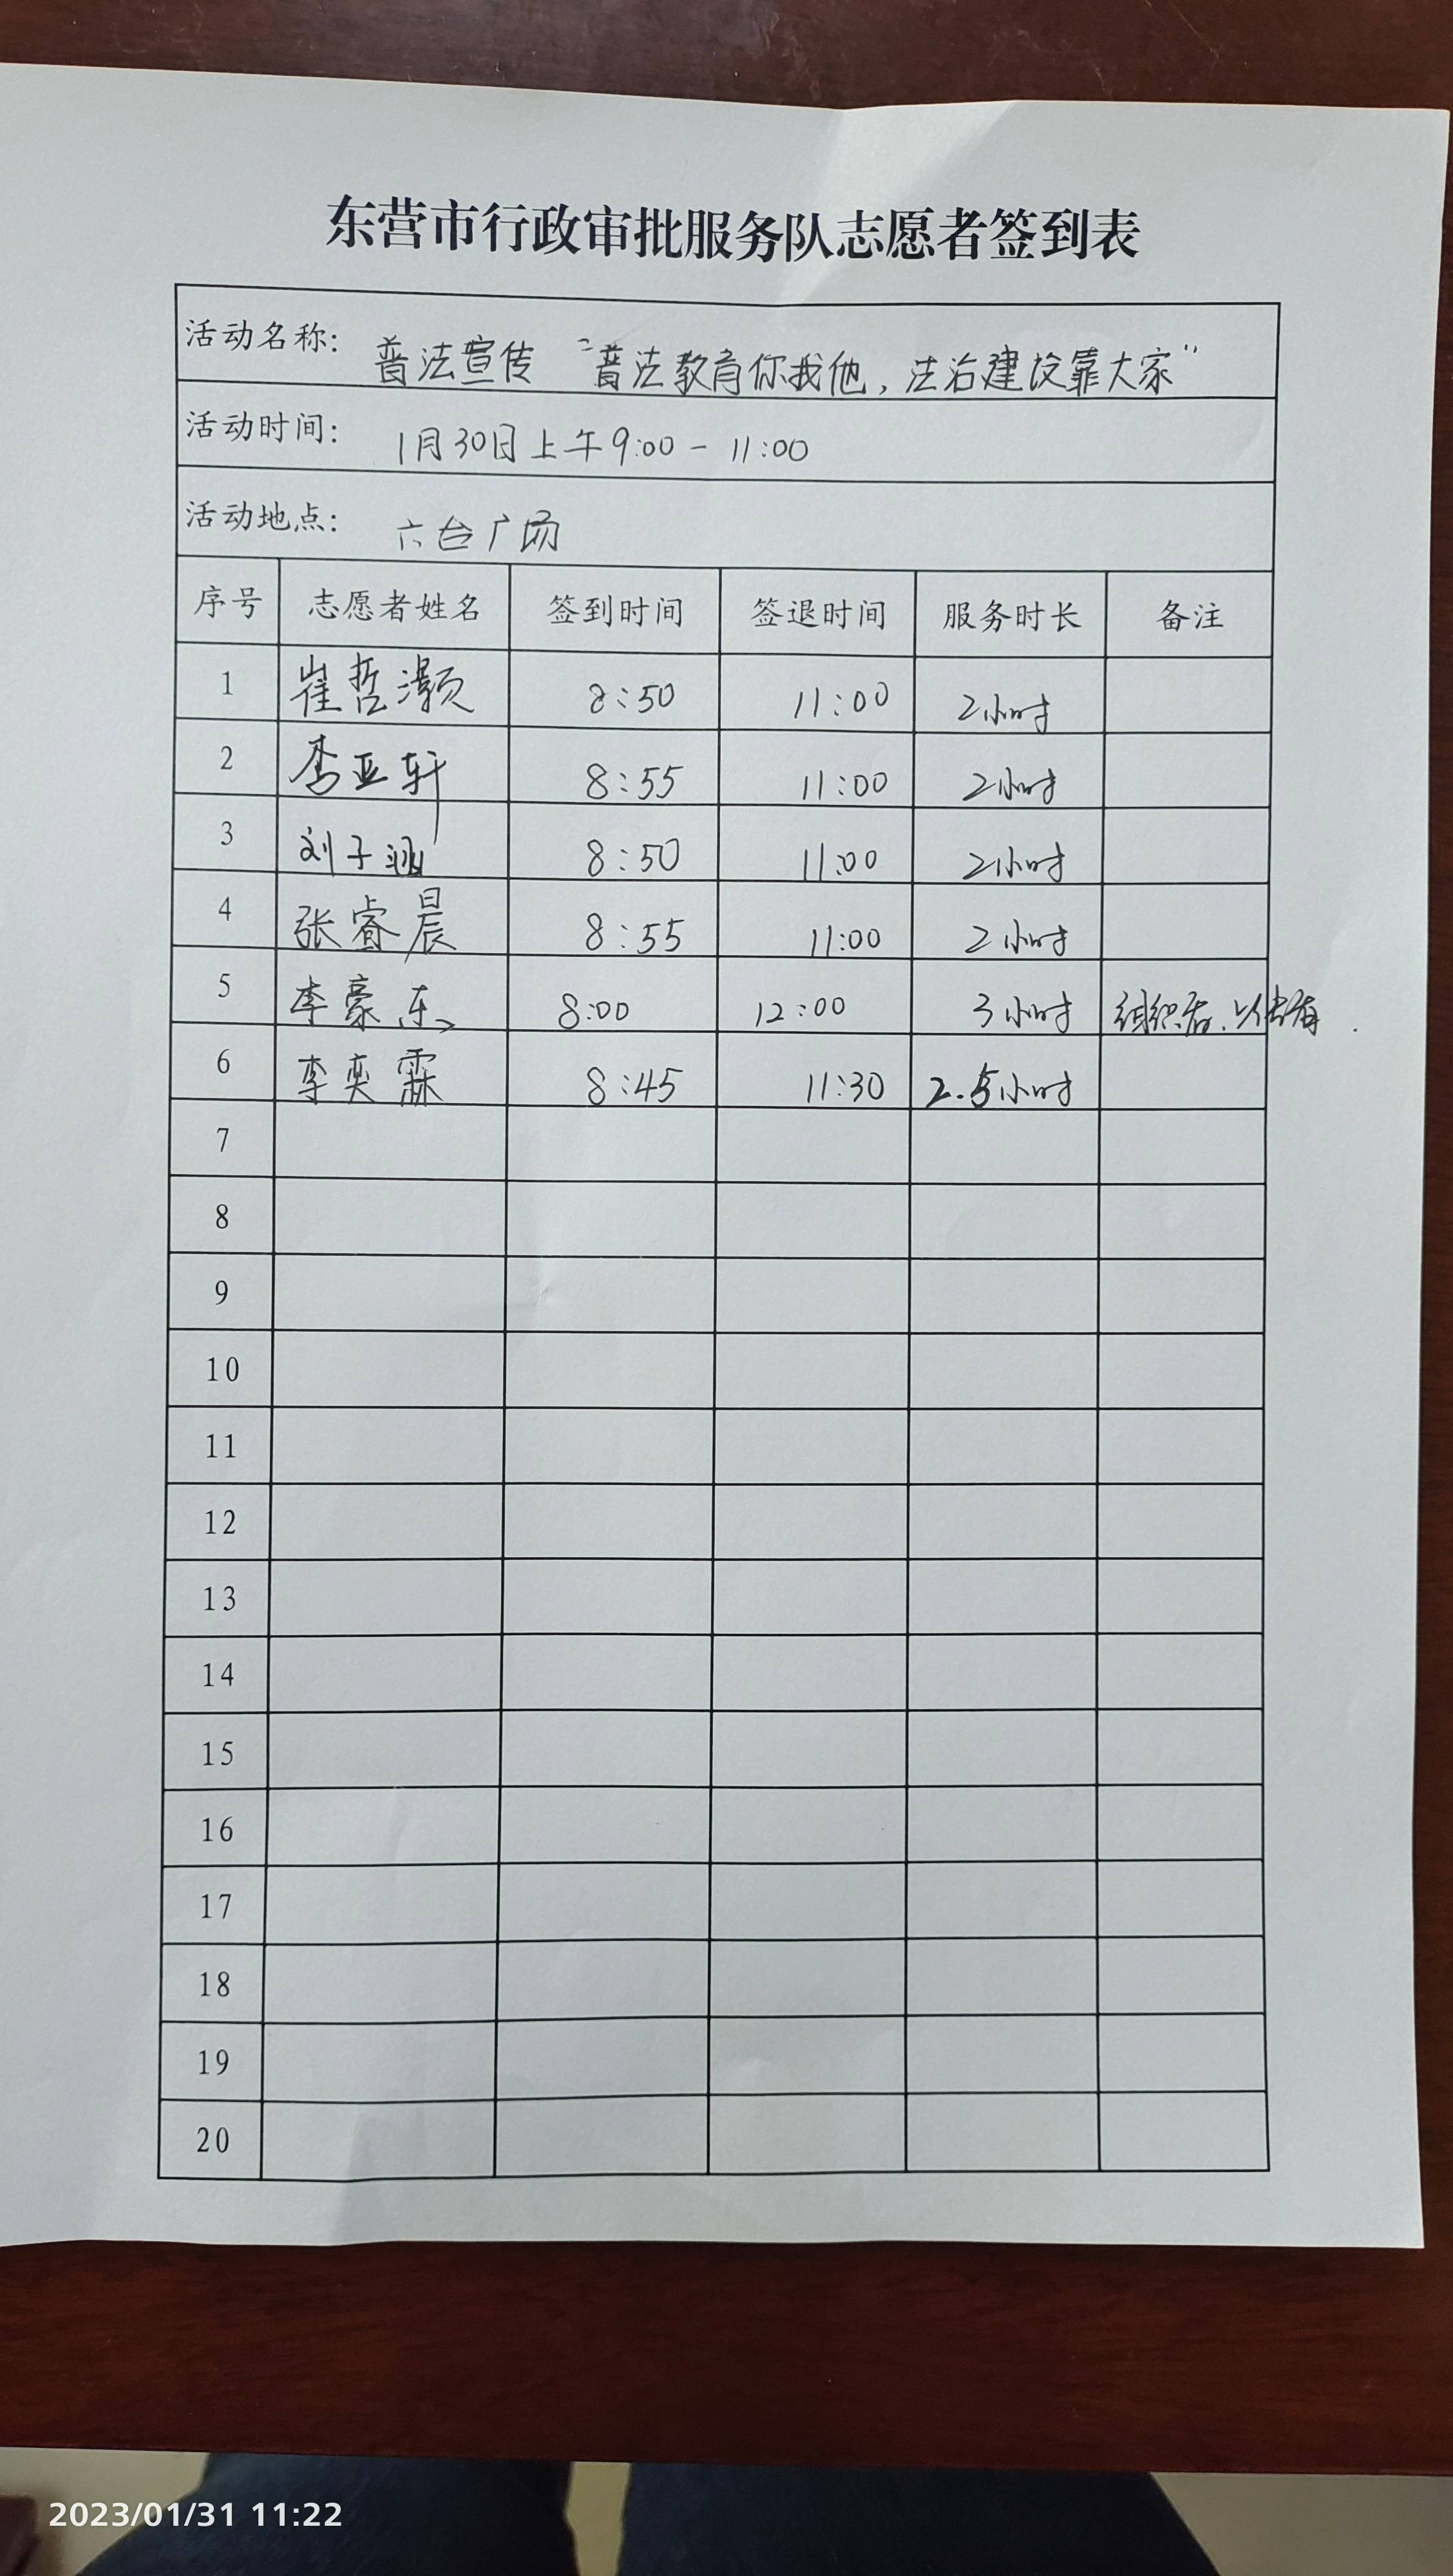 东营市行政审批服务队志愿者签到表
活动名称: 普法宣传 “普法教育你我他, 法治建设靠大家”
活动时间: 1月30日上午9:00-11:00
活动地点: 六合广场
序号 志愿者姓名 签到时间 签退时间 服务时长 备注
1 崔哲灏 8:50 11:00 2小时
2 李亚轩 8:55 11:00 2小时
3 刘子涵 8:50 11:00 2小时
4 张睿晨 8:55 11:00 2小时
5 李豪东 8:00 12:00 3小时 组织者.
6 李奕霖 8:45 11:30 2.5小时
7
8
9
10
11
12
13
14
15
16
17
18
19
20
2023/01/31 11:22